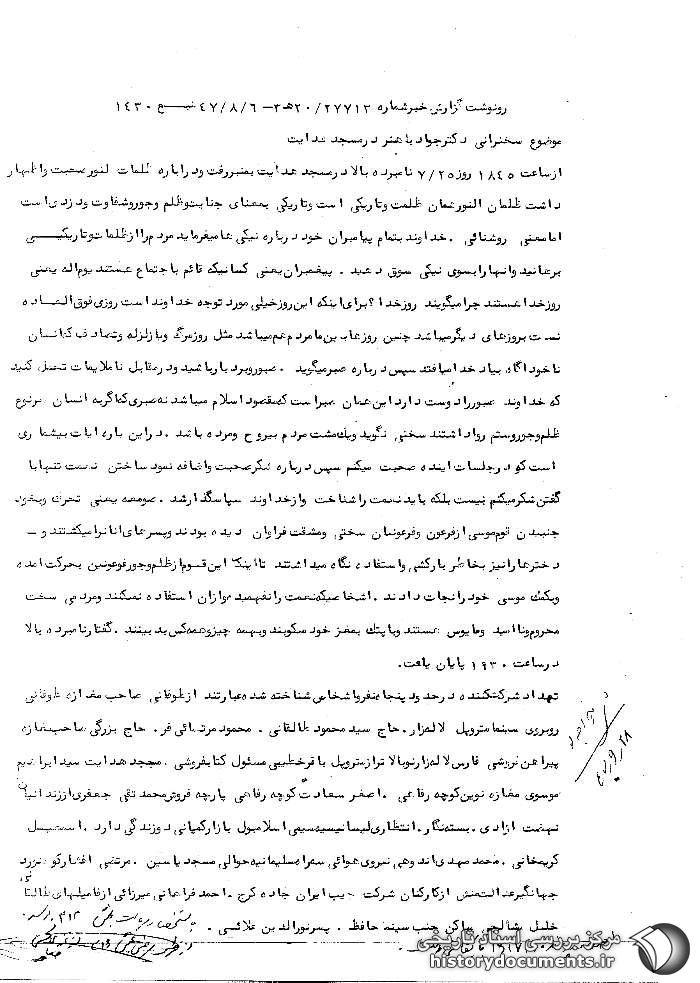 رونوشت گزارش خبر شماره ۲۷۷۱۳ / ۲۰ هـ ۳ – ۴۷/۸/۶ ۱۴۳۰
موضوع سخنرانی دکتر جواد باهنر در مسجد هدایت
از ساعت ۱۸۴۵ روز ۷/۲۵ نامبرده بالا در مسجد هدایت بمنبر رفت و درباره ظلمات النور صحبت و اظهار
داشت ظلمان النور همان ظلمت و تاریکی است و تاریکی بمعنای جنایت و ظلم و جور و شقاوت و دزدی است
اما معنی روشنائی . خداوند بتمام پیامبران خود درباره نیکی ها میفرماید مردم را از ظلمات و تاریکی
برهانید و انها را بسوی نیکی سوق دهید . پیغمبران یعنی کسانیکه قائم باجتماع هستند یوم اله یعنی
روز خدا هستند چرا میگویند روز خدا ؟ برای اینکه این روز خیلی مورد توجه خداوند است روزی فوق العاده
نسبت بروزهای دیگر میباشد چنین روزها بین ما مردم هم میباشد مثل روز مرگ و یا زلزله و تصادف که انسان
ناخودآگاه بیاد خدا میافتد سپس درباره صبر میگوید . صبور و بردبار باشید و در مقابل ناملایمات تحمل کنید
که خداوند صبور را دوست دارد این همان صبر است که مقصود اسلام میباشد نه صبری که اگر به انسان هر نوع
ظلم و جور و ستم روا داشتند سخنی نگوید و یک مشت مردم بیروح و مرده باشد . در این باره ایات بیشماری
است که در جلسات اینده صحبت میکنم سپس درباره شکر صحبت و اضافه نمود ساختن نعمت تنها با
گفتن شکر میکنم نیست بلکه باید نعمت را شناخت و از خداوند سپاسگذار شد . صومعه یعنی تحرک و بخود
جنبیدن قوم موسی از فرعون و فرعونیان سختی و مشقت فراوان دیده بودند و پسرهای انانرا میکشتند و –
دخترها را نیز بخاطر بارکشی و استفاده نگاه میداشتند تا اینکه این قوم از ظلم و جور فرعونین بحرکت امده
و بکمک موسی خود را نجات دادند . اشخاصیکه نعمت را نفهمید و از ان استفاده نمیکنند و مردمی سخت
محروم و ناامید و مایوس هستند و با پتک بمغز خود میکوبند و بهمه چیز و همه کس بدبینند . گفتار نامبرده بالا
در ساعت ۱۹۳۰ پایان یافت .
تعداد شرکت کننده در حدود پنجاه نفر و اشخاص شناخته شده عبارتند از طوفانی صاحب مغازه طوفانی
روبروی سینما متروپل لاله زار . حاج سید محمود طالقانی . محمود مرتضائی فر . حاج بزرگی صاحب مغازه
پیراهن فروشی فارس لاله زار نو بالاتر از متروپل باقر خطیبی مسئول کتابفروشی . مسجد هدایت سید ابراهیم
موسوی مغازه نوین کوچه رفاهی . اصغر سعادت کوچه رفاهی پارچه فروش محمد تقی جعفری از زندانیان
نهضت ازادی . بسته نگار . انتظاری لیسانسیه سیمی اسلامبول بازار کمپانی دوزندگی دارد . اسمعیل
کریمخانی . محمد مهدی اندوهی نیروی هوائی سه راه سلیمانیه حوالی مسجد یاسین . مرتضی افشار کوی
جهانگیر عدالتمنش از کارکنان شرکت جیپ ایران جاده کرج . احمد فراهانی میرزائی از فامیلهای طالقانی
خلیل شالچی ساکن جنب سینما حافظ . پسر نورالدین علائی .
مرکز بررسی اسناد تاریخی
historydocuments.ir